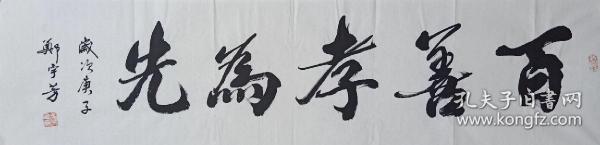 百善孝為先
歲次庚子
鄭宇芳
孔夫子旧书网
www.kongfz.com